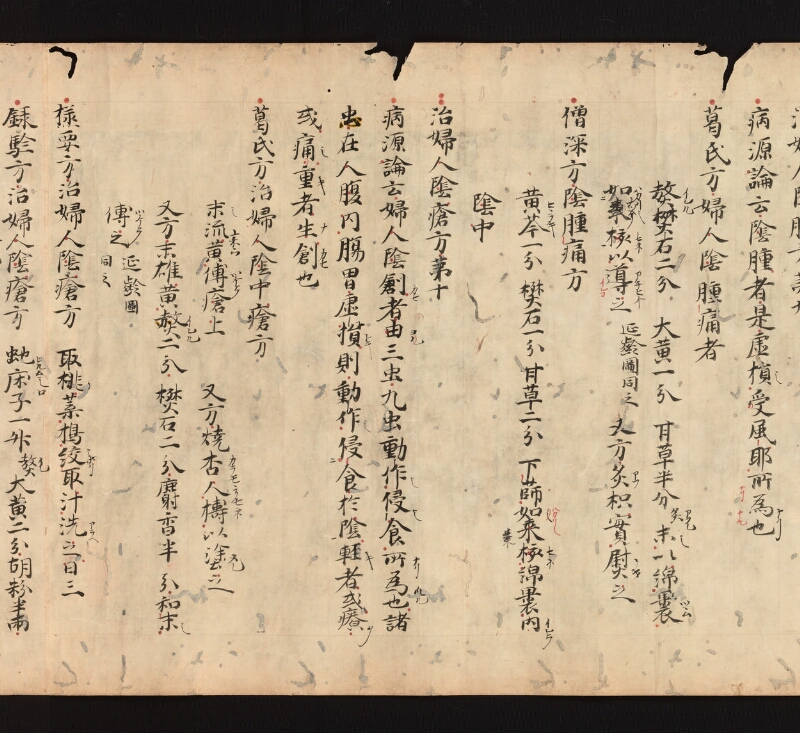 治婦人陰腫方第九
病源論云陰腫者是虛損受風耶所為也
葛氏方婦人陰腫痛者
熬礬石二分　大黃一分　甘草半分炙　末以綿裹
如棗核以導之　延齡圖同之　又方炙枳實熨之
僧深方陰腫痛方
黃芩一分　礬石一分　甘草二分　下篩如棗核綿裹內
陰中
治婦人陰瘡方第十
病源論云婦人陰創者由三虫九虫動作侵食所為也諸
虫在人腹內腸胃虛損則動作侵食於陰輕者或癢
或痛重者生創也
葛氏方治婦人陰中瘡方
末流黃傅瘡上　又方燒杏人擣以塗之
又方末雄黃熬二分　礬石二分　麝香半分　和末
傅之　延齡圖同之
錄驗方治婦人陰瘡方　虵床子一升　熬　大黃二分　胡粉半兩